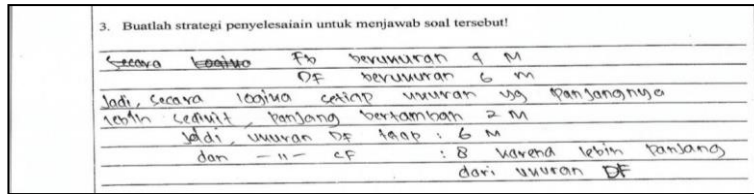 3. Buatlah strategi penyelesaiain untuk menjawab soal tersebut!
Secara logika Fb berukuran 4 M
DF berukuran 6 m
Jadi, secara logika setiap ukuran yg panjangnya
lebih sedikit, panjang bertambah 2 M
Jadi, ukuran DF tetap : 6 M
dan —"— CF : 8 karena lebih panjang
dari ukuran DF